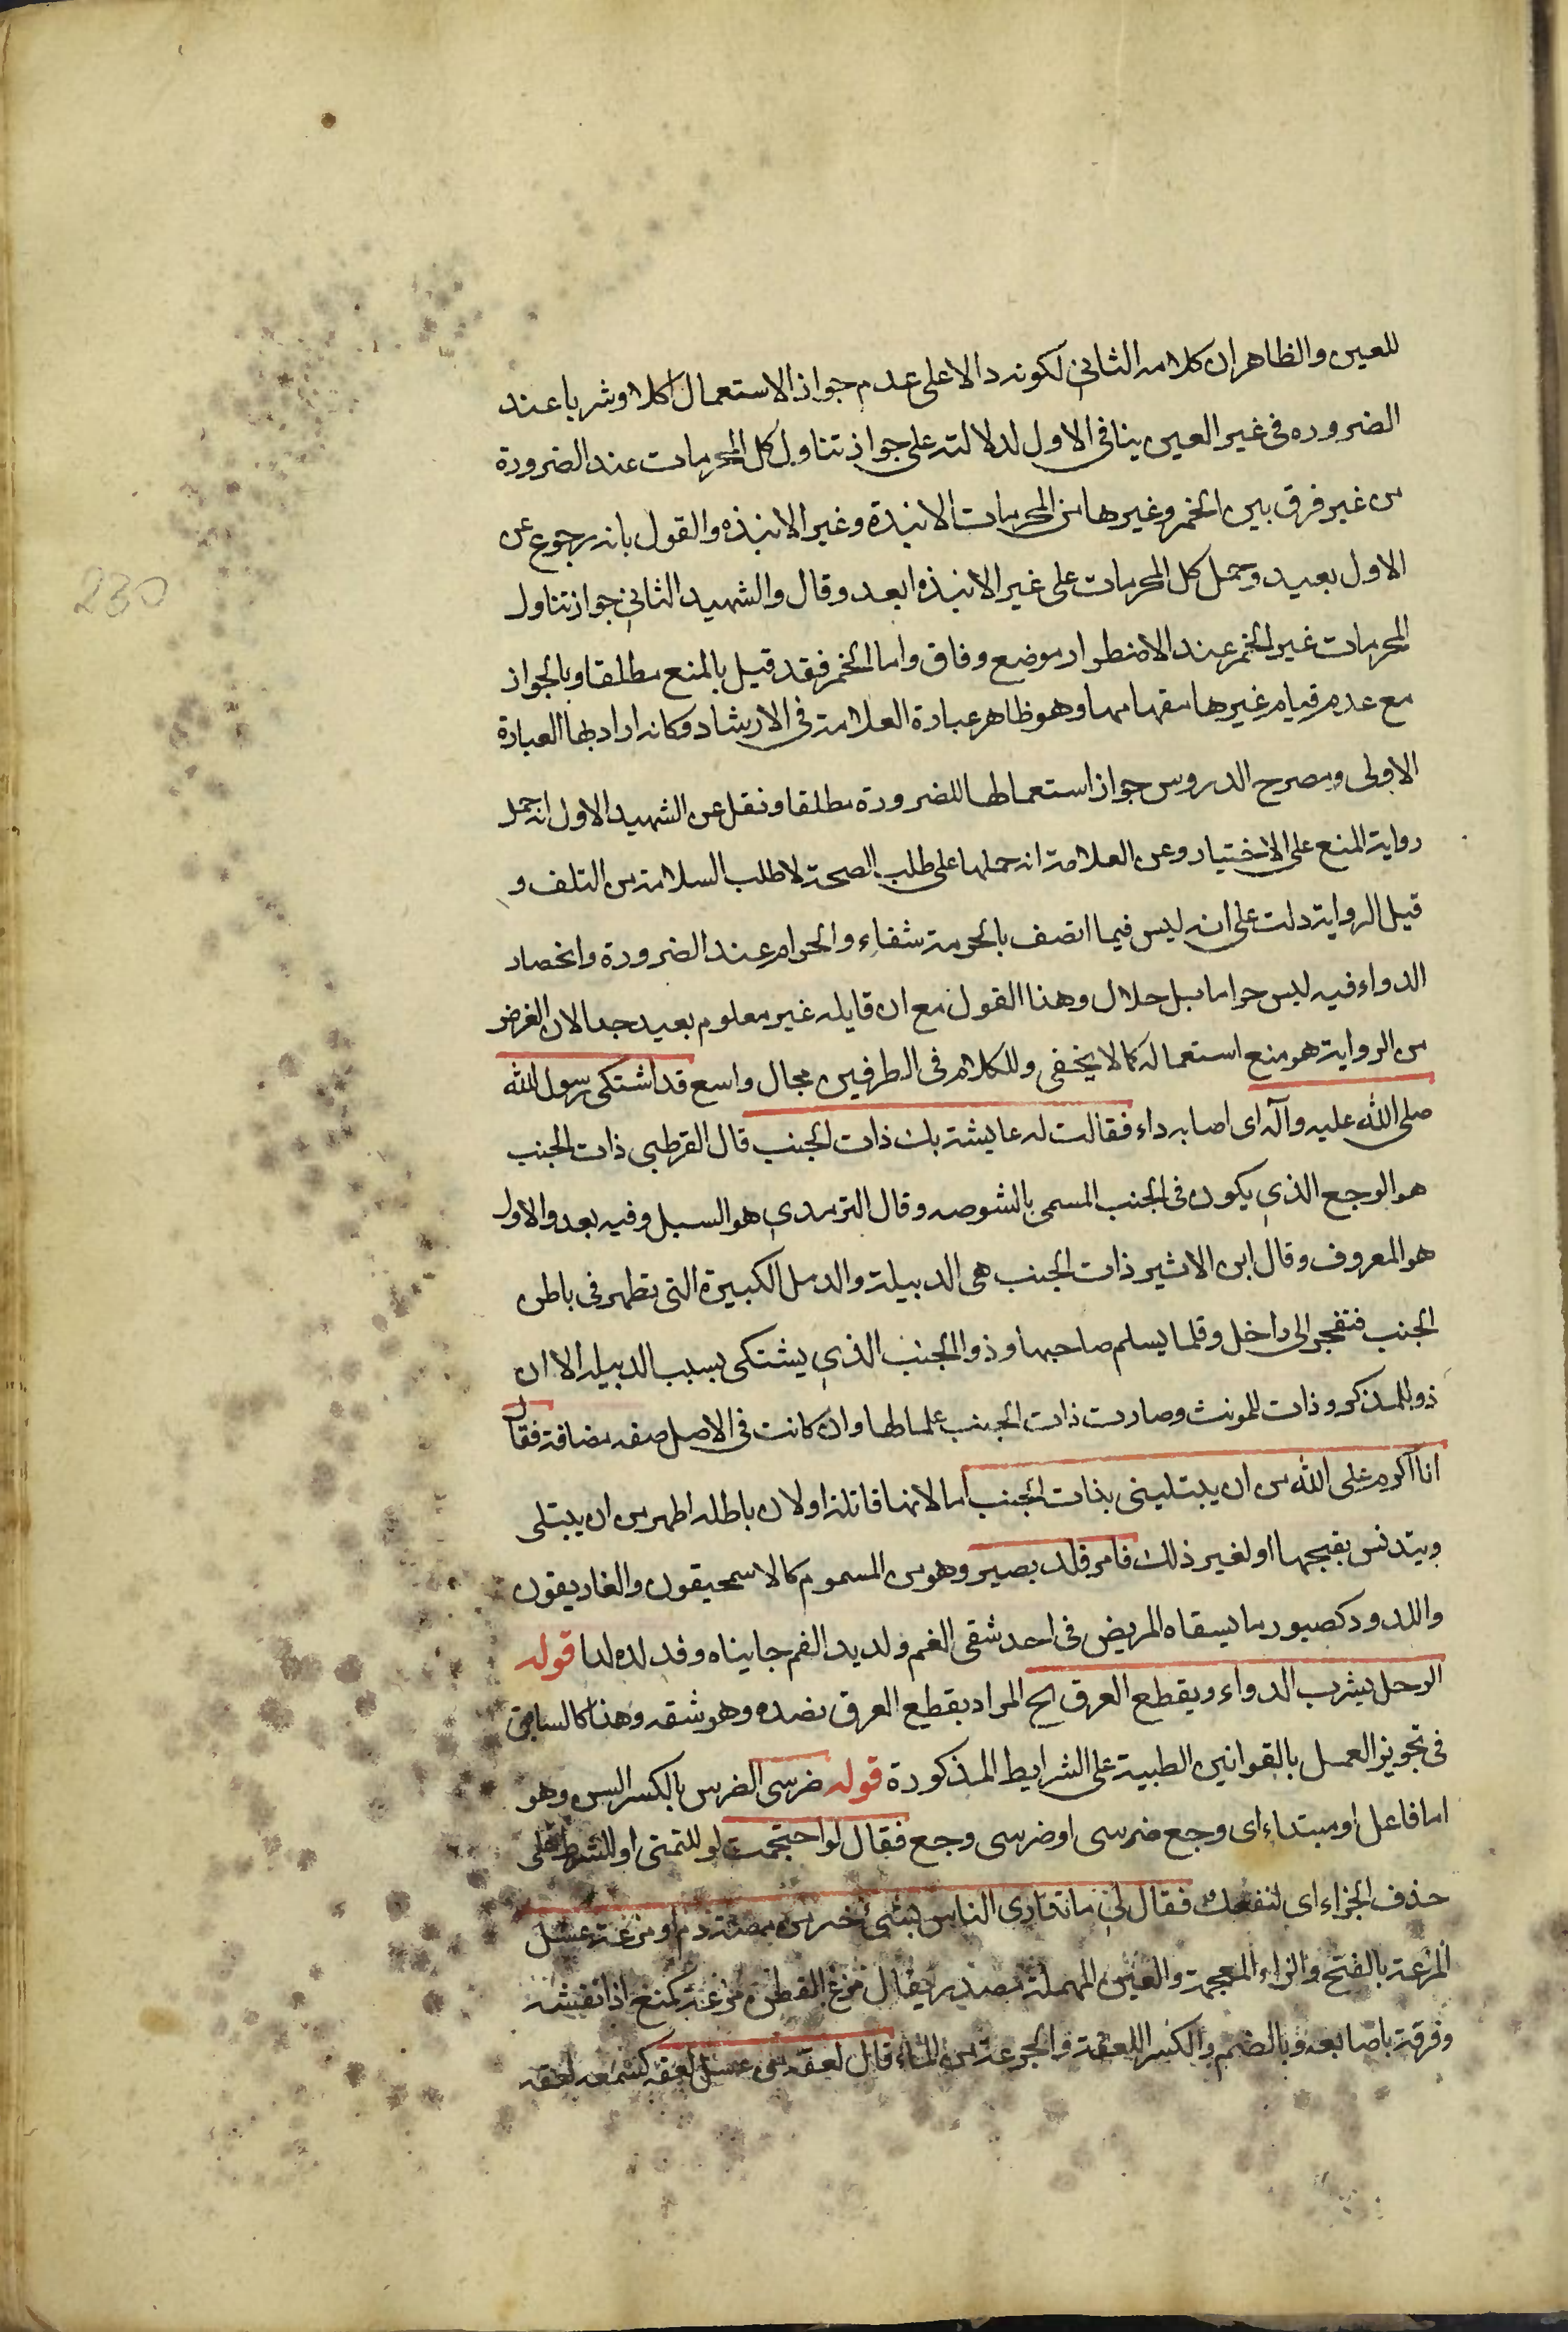 للعين والظاهر ان كلامه الثاني لكونه دالا على عدم جواز الاستعمال اكلا وشربا عند
الضروره فى غير العين ينافى الاول لدلالته على جواز تناول كل المحرمات عند الضرورة
من غير فرق بين الخمر وغيرها من المحرمات الانبذة وغير الانبذه والقول بانه رجوع عن
الاول بعيد وحمل كل المحرمات على غير الانبذه ابعد وقال والشهيد الثاني جواز تناول
230
المحرمات غير الخمر عند الاضطرار موضع وفاق واما الخمر فقد قيل بالمنع مطلقا وبالجواز
مع عدم قيام غيرها مقامها وهو ظاهر عبارة العلامة فى الارشاد وكانه اراد بها العبارة
الاولى ومصرح الدروس جواز استعمالها للضرورة مطلقا ونقل عن الشهيد الاول انه حمل
رواية المنع على الاختيار وعن العلامة انه حملها على طلب الصحة لا طلب السلامة من التلف و
قيل الرواية دلت على انه ليس فيما اتصف بالحرمة شفاء والحرام عند الضرورة وانحصار
الدواء فيه ليس حراما بل حلال وهذا القول مع ان قايله غير معلوم بعيد جدا لان الغرض
من الرواية هو منع استعماله كما لا يخفى وللكلام فى الطرفين مجال واسع قد اشتكى رسول الله
صلى الله عليه وآله اى اصابه داء فقالت له عايشة بك ذات الجنب قال القرطبى ذات الجنب
هو الوجع الذي يكون فى الجنب المسمى بالشوصه وقال الترمدي هو السل وفيه بعد والاول
هو المعروف وقال ابن الاثير ذات الجنب هى الدبيلة والدمل الكبيرة التى تظهر فى باطن
الجنب فتنفجر الى داخل وقلما يسلم صاحبها وذو الجنب الذي يشتكى بسبب الدبيله الا ان
ذو للمذكر وذات للمونث وصارت ذات الجنب علما لها وان كانت فى الاصل صفه مضافة فقال
انا اكرم على الله من ان يبتلينى بذات الجنب اما لانها قاتلة او لان باطله اطهر من ان يبتلى
ويتدنس بقيحها او لغير ذلك فامر فلد بصبر وهو من المسموم كالاسمحيقون والغاريقون
واللدود كصبور ما يسقاه المريض فى احد شقى الفم ولديد الفم جانباه وقد لده لدا قوله
الرجل يشرب الدواء ويقطع العرق الخ المراد بقطع العرق فصده وهو شقه وهذا كالسابق
فى تجويز العمل بالقوانين الطبية على الشرايط المذكورة قوله ضرسى الضرس بالكسر السن وهو
اما فاعل او مبتداء اى وجع ضرسى او ضرسى وجع فقال لو احتجمت لو للتمنى او للشرط على
حذف الجزاء اى لنفعك فقال لي ما تداوى الناس بشى خير من مصة دم او مزعة عسل
المزعة بالفتح والزاء المعجمة والعين المهملة مصدر يقال مزع القطن مزعة كمنع اذا نفشه
وفرقه باصابعه وبالضم والكسر اللعقة والجرعة من الماء قال لعقه من عسل لعقه كسمعه لعقه